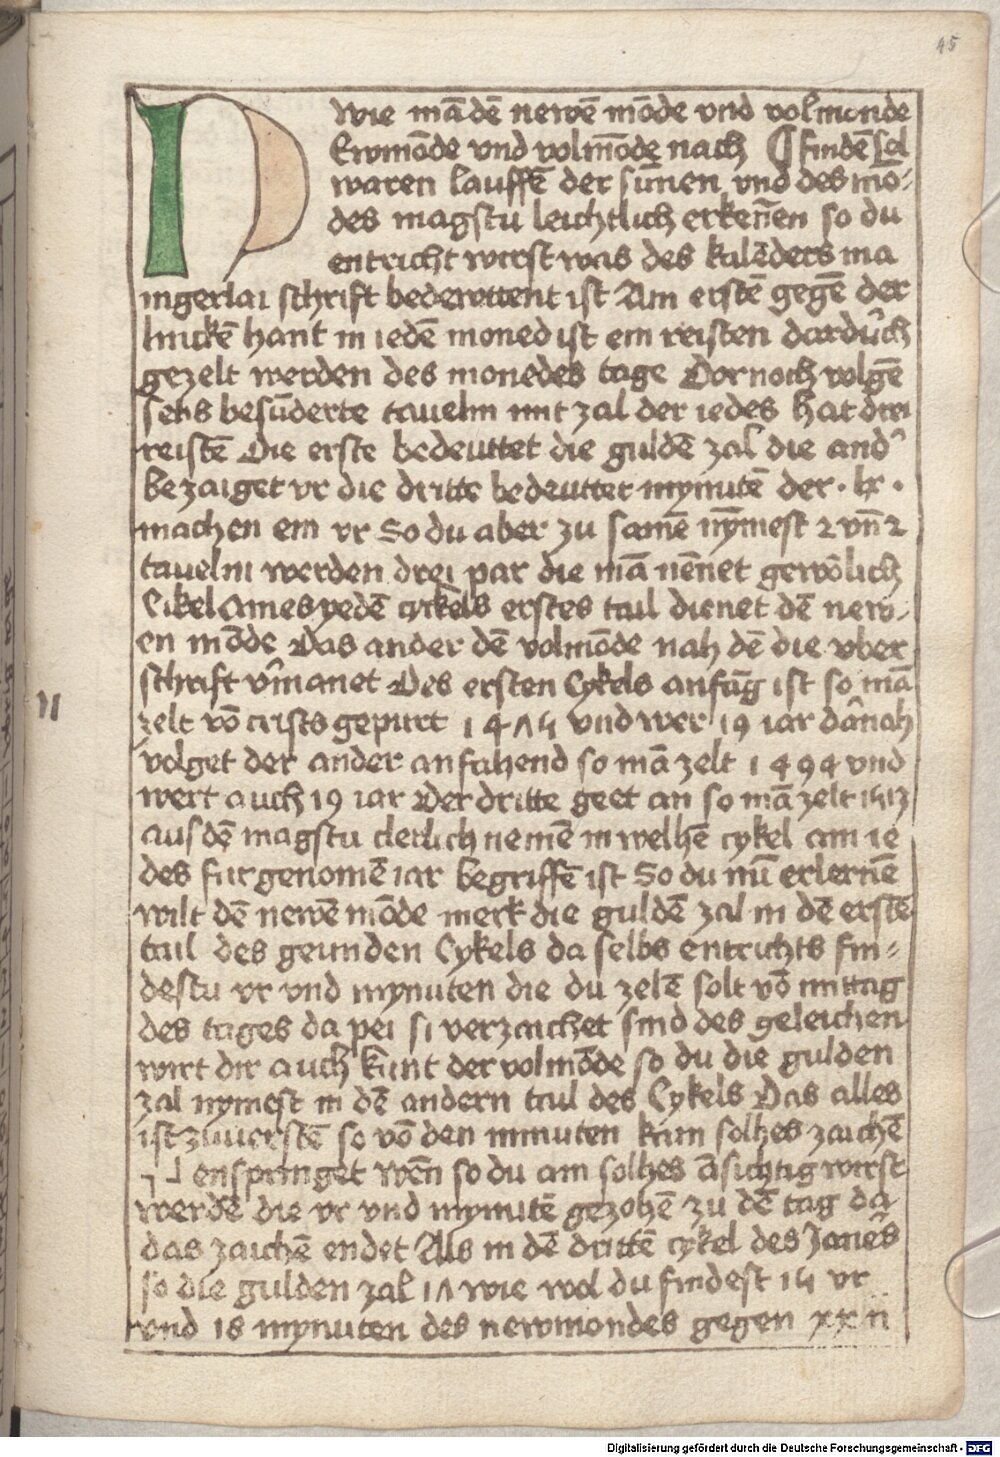 45
Wie mā dē newē mōde vnd volmonde
N Ewmōde vnd volmōde nach ¶ findē sol
waren lauffē der sūnen vnd des mo⸗
des magstu leichtlich erkeñen so du
entricht wirst was des kalēders ma
ingerlai schrift bedewttent ist Am erstē gegē der
linckē hant in iedē moned ist ein reisten dardůch
gezelt werden des monedes tage Dornoch volgē
sehs besūderte tauelin mit zal der iedes hat drei
reistē Die erste bedeuttet die guldē zal die and
bezaiget vr die dritte bedeuttet mynutē der . lx .
machen ein vr So du aber zu samē nȳmest 2 vñ 2
tauelin werden drei par die mā nēnet gewōlich
Cikel Aines yedē cyckels erstes tail dienet dē new⸗
en mōde Das ander dē volmōde nah dē die vber
schrift v̄manet Des ersten Cykels anfāg ist so mā
zelt vō crists gepurt 1475 vnd wer 19 iar dānah
volget der ander anfahend so mā zelt 1494 vnd
wert auch 19 iar Der dritte geet an so mā zelt 1513
aus dē magstu cletlich nemē in welhē cykel ain ie
des furgenomē iar begriffē ist So du nū erlernē
wilt dē newē mōde merk die guldē zal in dē erstē
tail des geunden Cykels da selbs entrichts fin⸗
destu vr vnd mynuten die du zelē solt vō mittag
des tages da pei si verzaichet sind des geleichen
wirt dir auch kūnt der volmōde so du die gulden
zal nymest in dē andern tail des Cykels Das alles
ist zuuerstē so vō den minuten kain solhes zaichē
enspringet wēn so du ain solhes āsichtig wirst
werdē die vr vnd mynutē gezohē zu dē tag da
das zaichē endet Als in dē drittē cykel des Janēs
so die gulden zal 17 wie wol du findest 15 vr
vnd 18 mynuten des newmondes gegen xx ii
Digitalisierung gefördert durch die Deutsche Forschungsgemeinschaft - DFG